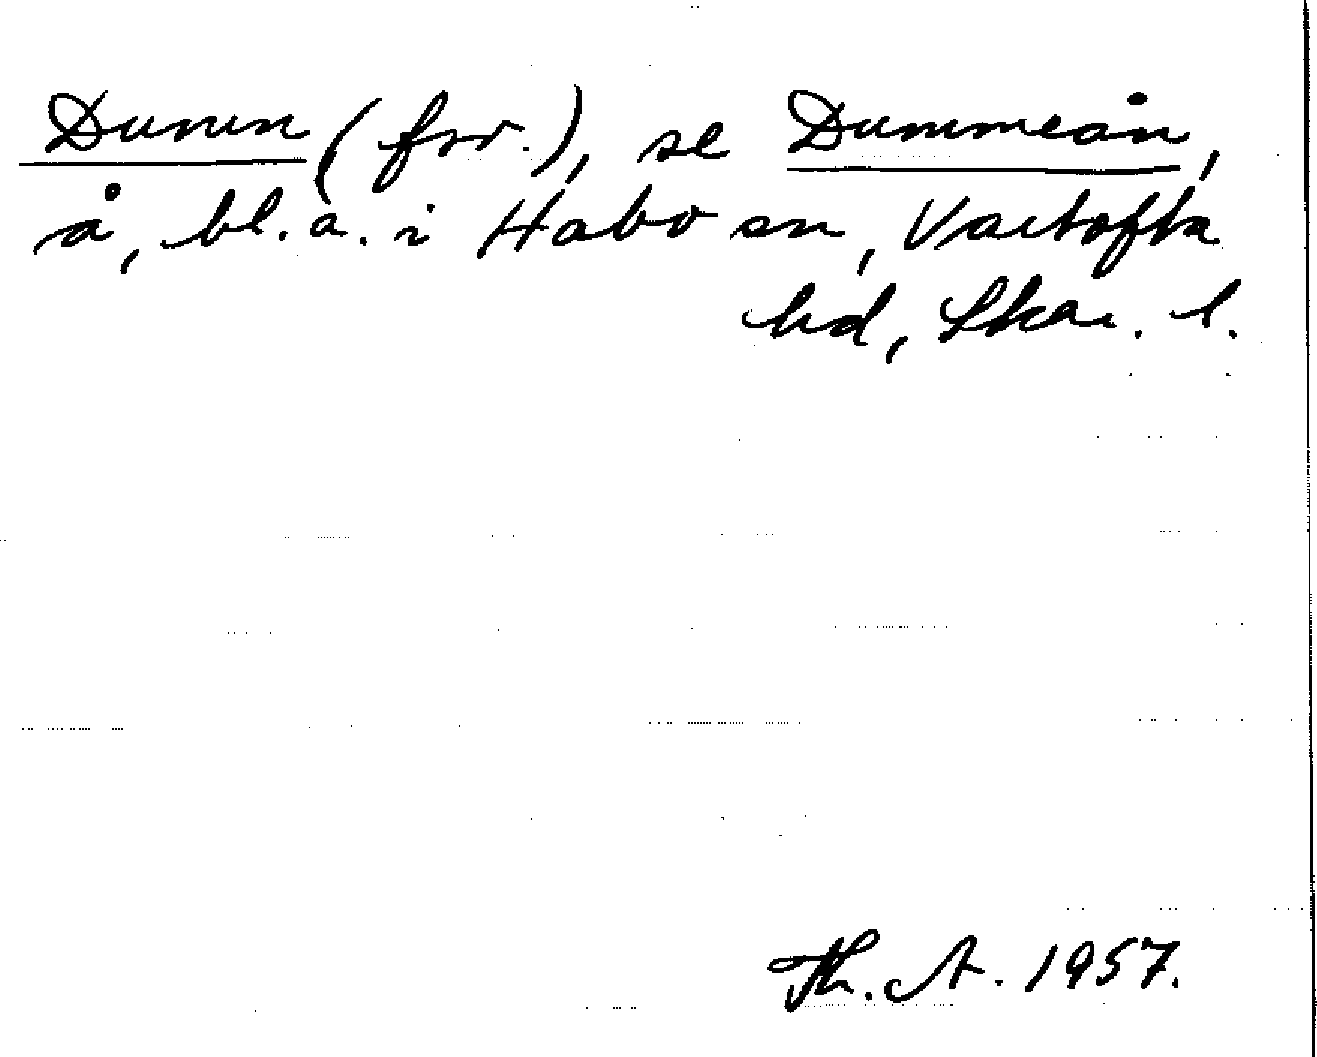 Dumn (for.), se Dummeån,
å, bl.a. i Habo sn, Vartofta
hd, Skar. l.
Th. A. 1957.